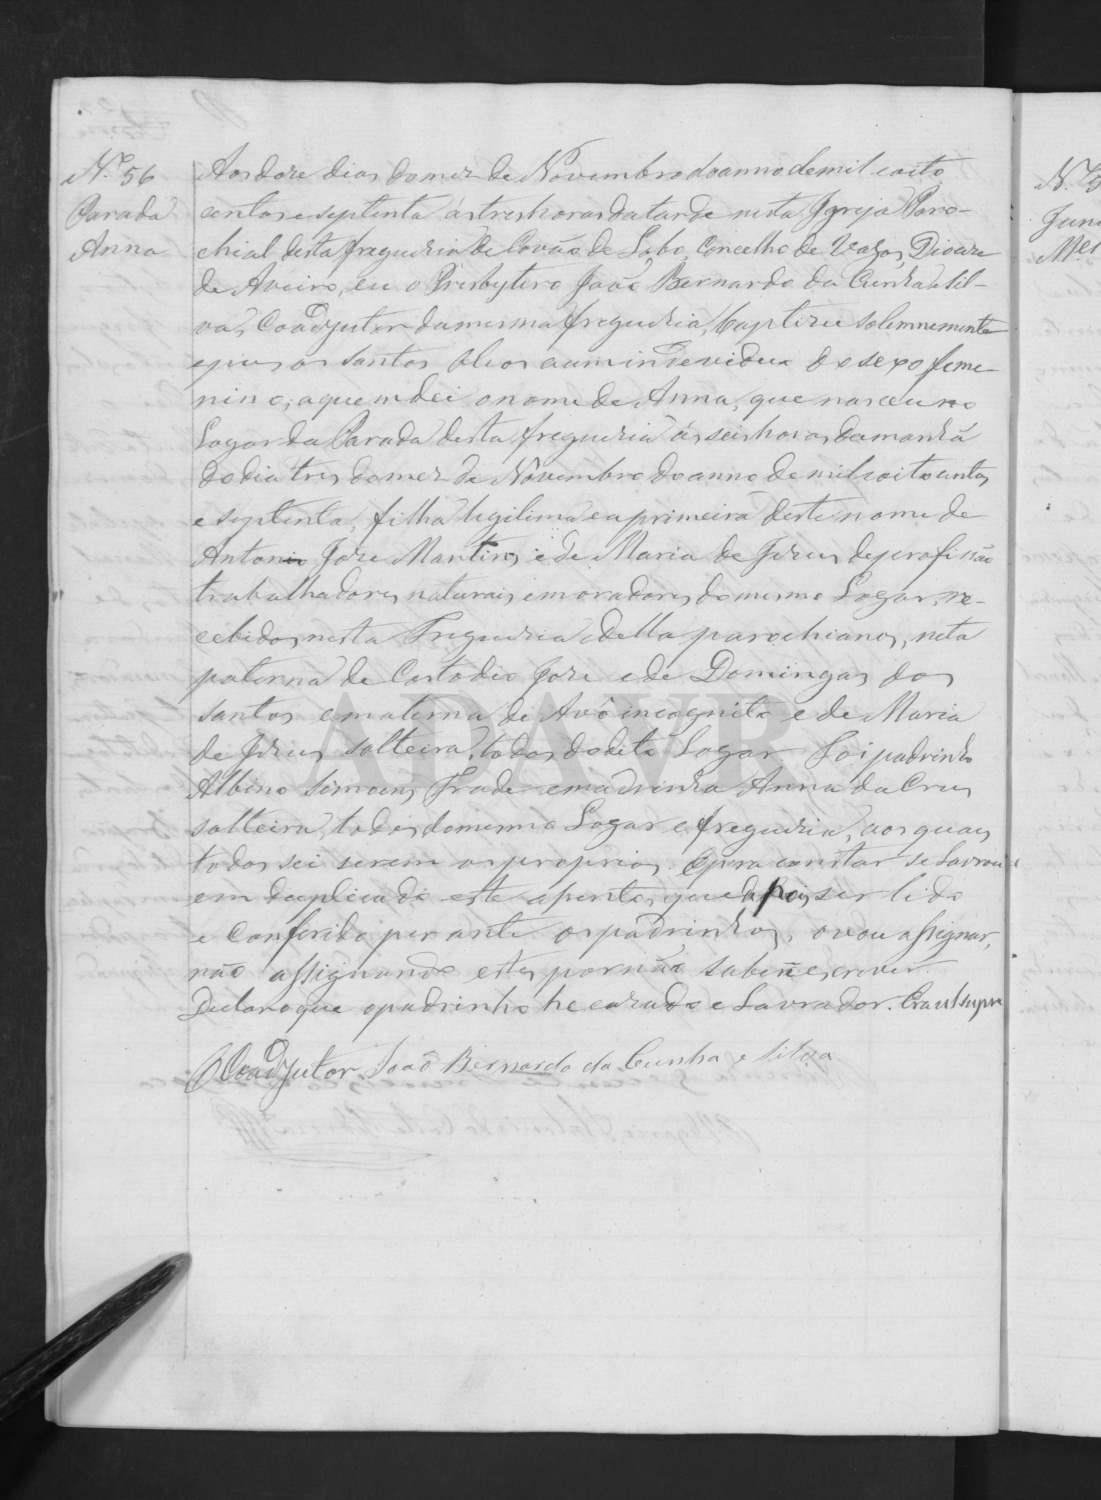 N.º 56
Parada
Anna
Aos doze dias do mez de Novembro do anno de mil e oito
centos e septenta ás tres horas da tarde nesta Igreja Paro-
chial desta freguezia de Covão do Lobo, Concelho de Vagos, Diocese
de Aveiro, eu o Presbytero João Bernardo da Cunha e Sil-
va, Coadjutor da mesma freguezia, baptizei solemnemente
e puz os santos oleos a um individuo do sexo feme-
nino, a quem dei o nome de Anna, que nasceu no
Logar da Parada desta freguezia ás seis horas da manhã
do dia tres do mez de Novembro do anno de mil e oitocentos
e septenta, filha legitima e a primeira deste nome de
Antonio Joze Martins, e de Maria de Jezus de profissão
trabalhadores, naturais e moradores do mesmo Logar, re-
cebidos nesta Freguezia e della parochianos, neta
paterna de Custodio Joze e de Domingas dos
santos e materna de Avô incognito e de Maria
de Jezus solteira, todos do dito Logar Foi padrinho
Albino Simoens Frade e madrinha Anna da Cruz
solteira, todos do mesmo Logar e freguezia, aos quaes
todos sei serem os proprios. E para constar se lavrou
em duplicado este assento, que depois ser lido
e conferido perante os padrinhos, o vou assignar,
não assignando estes por não saberem escrever.
Declaro que o padrinho he cazado e Lavrador. Era ut supra
O Coadjutor João Bernardo da Cunha e Silva
ADAVR